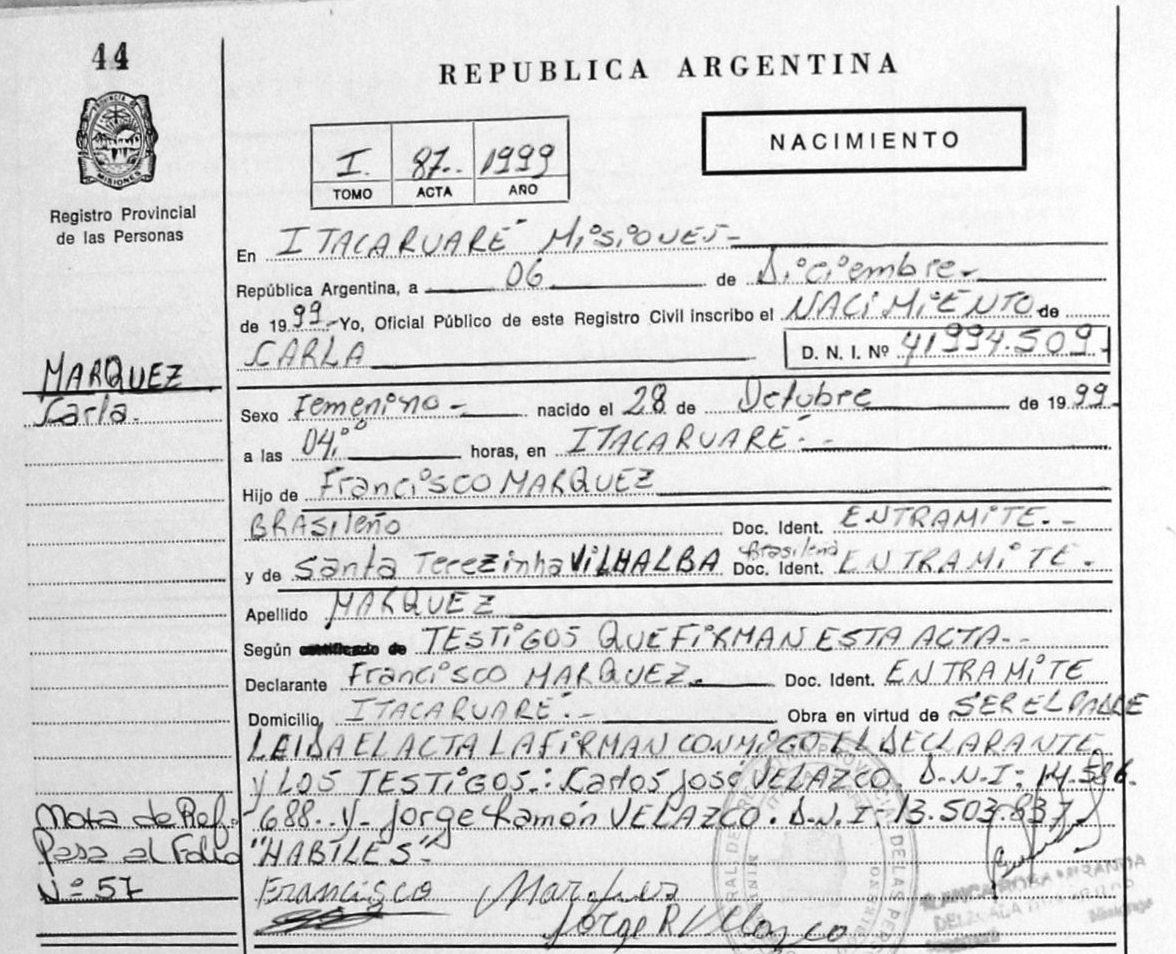 44
REPUBLICA ARGENTINA
NACIMIENTO
I. 87.. 1999
TOMO ACTA AÑO
MISIONES
Registro Provincial
de las Personas
En ITACARUARÉ MISIONES-
República Argentina, a 06 de Diciembre-
de 1999.- Yo, Oficial Público de este Registro Civil inscribo el NACIMIENTO de
CARLA D. N. I. Nº 41994.509
MARQUEZ
Carla.
Sexo Femenino - nacido el 28 de Octubre de 1999-
a las 04,00 horas, en ITACARUARÉ.-
Hijo de Francisco MARQUEZ
BRASileño Doc. Ident. EN TRAMITE.-
y de Santa Terezinha VILHALBA Brasileña Doc. Ident. EN TRAMITE.
Apellido MARQUEZ
Según certificado de TESTIGOS QUE FIRMAN ESTA ACTA.-
Declarante Francisco MARQUEZ.- Doc. Ident. EN TRAMITE
Domicilio, ITACARUARÉ.- Obra en virtud de SER EL PADRE
LEIDA EL ACTA LA FIRMAN CONMIGO EL DECLARANTE
y LOS TESTIGOS.: Carlos José VELAZCO D.N.I: 14.586.
688.. y- Jorge Ramón VELAZCO. D.N.I- 13.503.837
"HABILES"-
Nota de Ref.
Pasa al Folio
Nº 57
Francisco Marques
Jorge R Velazco